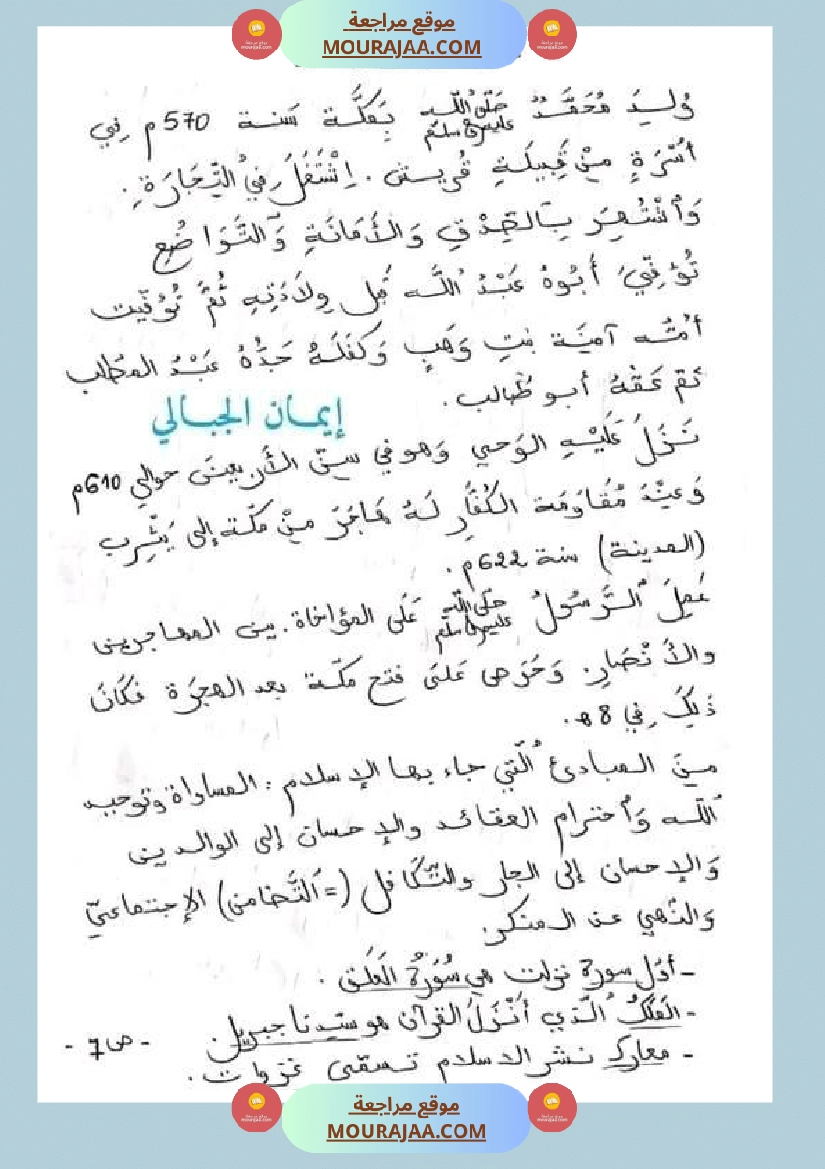 موقع مراجعة
MOURAJAA.COM
وُلِدَ مُحَمَّدٌ صَلَّى اللّٰه عليه وسلم بِمَكَّة سَنة 570م فِي
أُسْرَةٍ مِنْ قَبِيلَةِ قُريش. اِشْتَغَلَ فِي التِّجَارَةِ.
وَٱشْتُهِرَ بِالصِّدْقِ وَالأَمَانَةِ وَالتَّوَاضُعِ
تُوُفِّيَ أَبُوهُ عَبْدُ اللَّه قَبل وِلاَدَتِهِ ثُمَّ تُوُفّيت
أمّه آمنة بنتِ وَهَبٍ وَكَفَلَهُ جَدُّهُ عَبْدُ المطّلب
ثمّ عَمّهُ أبو طَالب.
إيمان الجبالي
نَزَلَ عَلَيْهِ الوَحيِ وَهو في سنّ الأربعينَ حوالي 610م
وَعِنْدَ مُقَاوَمَة الكُفَّارِ لَهُ هَاجَرَ مِنْ مَكّة إلى يَثْرِب
(المدينة) سنة 622م.
عَمِلَ الرَّسُولُ صلى اللّٰه عليه وسلم عَلَى المؤاخاة بين المهاجرين
والأَنْصَارِ. وَحَرَصَ عَلَى فتح مكّة بعد الهجرَة فكَانَ
ذَلِكَ فِي 8 هـ.
منَ المبادئ الّتي جاء بها الإسلام: المساواة وتوحيد
اللّه وَٱحترام العقائد والإحسان إلى الوالدين
وَالإحسان إلى الجار والتَّكَافل (= التَّضامن) الإجتماعيّ
وَالنّهي عن المنكر.
- أوّل سورة نزلت هي سُورَةُ العَلَق.
- المَلَكُ الّذي أَنْزَلَ القرآن هو سيّدنا جبريل.
- معارك نشر الاسلام تسمّى غزوات.
- ص7 -
موقع مراجعة
MOURAJAA.COM